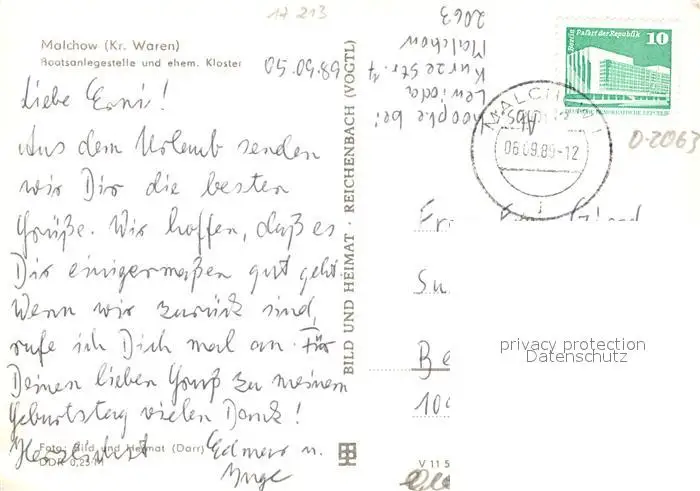 17 213
Malchow (Kr. Waren)
Bootsanlegestelle und ehem. Kloster
Liebe Erni!
Aus dem Urlaub senden
wir Dir die besten
Grüße. Wir hoffen, daß es
Dir einigermaßen gut geht.
Wenn wir zurück sind,
rufe ich Dich mal an. Für
Deinen lieben Gruß zu meinem
Geburtstag vielen Dank!
Herzlichst Edmer u.
Inge
Foto: Bild und Heimat (Darr)
DDR 0,25 M
BILD UND HEIMAT · REICHENBACH (VOGTL)
Abs.
bei
Kurze Str.
Malchow
2063
Berlin Palast der Republik
10
DEUTSCHE DEMOKRATISCHE REPUBLIK
MALCHOW
06.09.89-12
0-2063
Fr
Su
Be
10
privacy protection
Datenschutz
V 11 5